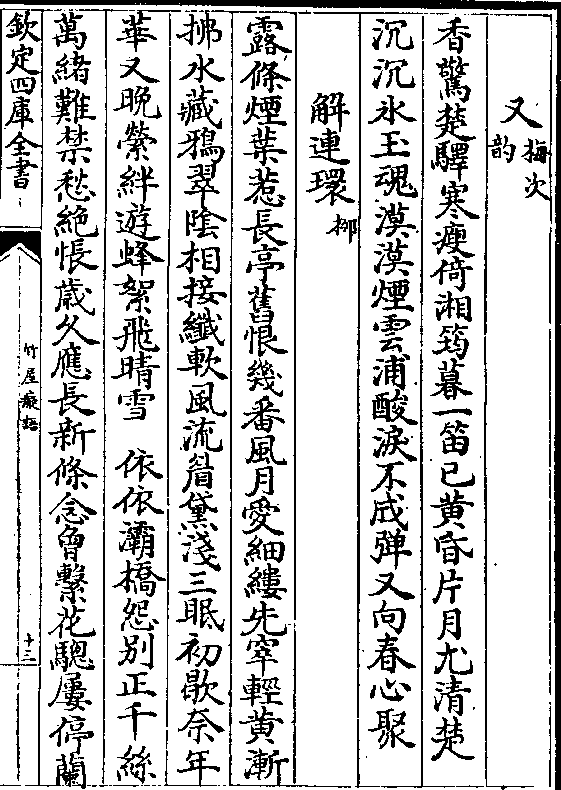 又梅次韵
香驚楚驛寒瘦倚湘筠暮一笛已黄昏片月尤清楚
沉沉氷玉魂漠漠煙雲浦酸淚不成彈又向春心聚
解連環栁
露條煙葉惹長亭舊恨幾番風月愛細縷先窣輕黄漸
拂水藏鴉翠陰相接纖軟風流眉黛淺三眠初歇奈年
華又晚縈絆遊蜂絮飛晴雪　依依灞橋怨别正千絲
萬緒難禁愁絶悵歲久應長新條念曾繫花驄屢停蘭
欽定四庫全書
竹屋癡語
十三